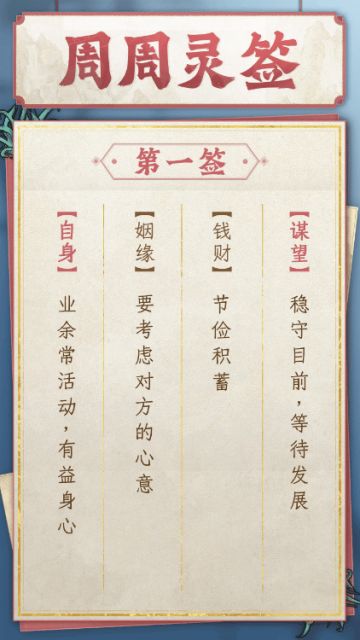 周周灵签
第一签
【谋望】稳守目前，等待发展
【钱财】节俭积蓄
【姻缘】要考虑对方的心意
【自身】业余常活动，有益身心